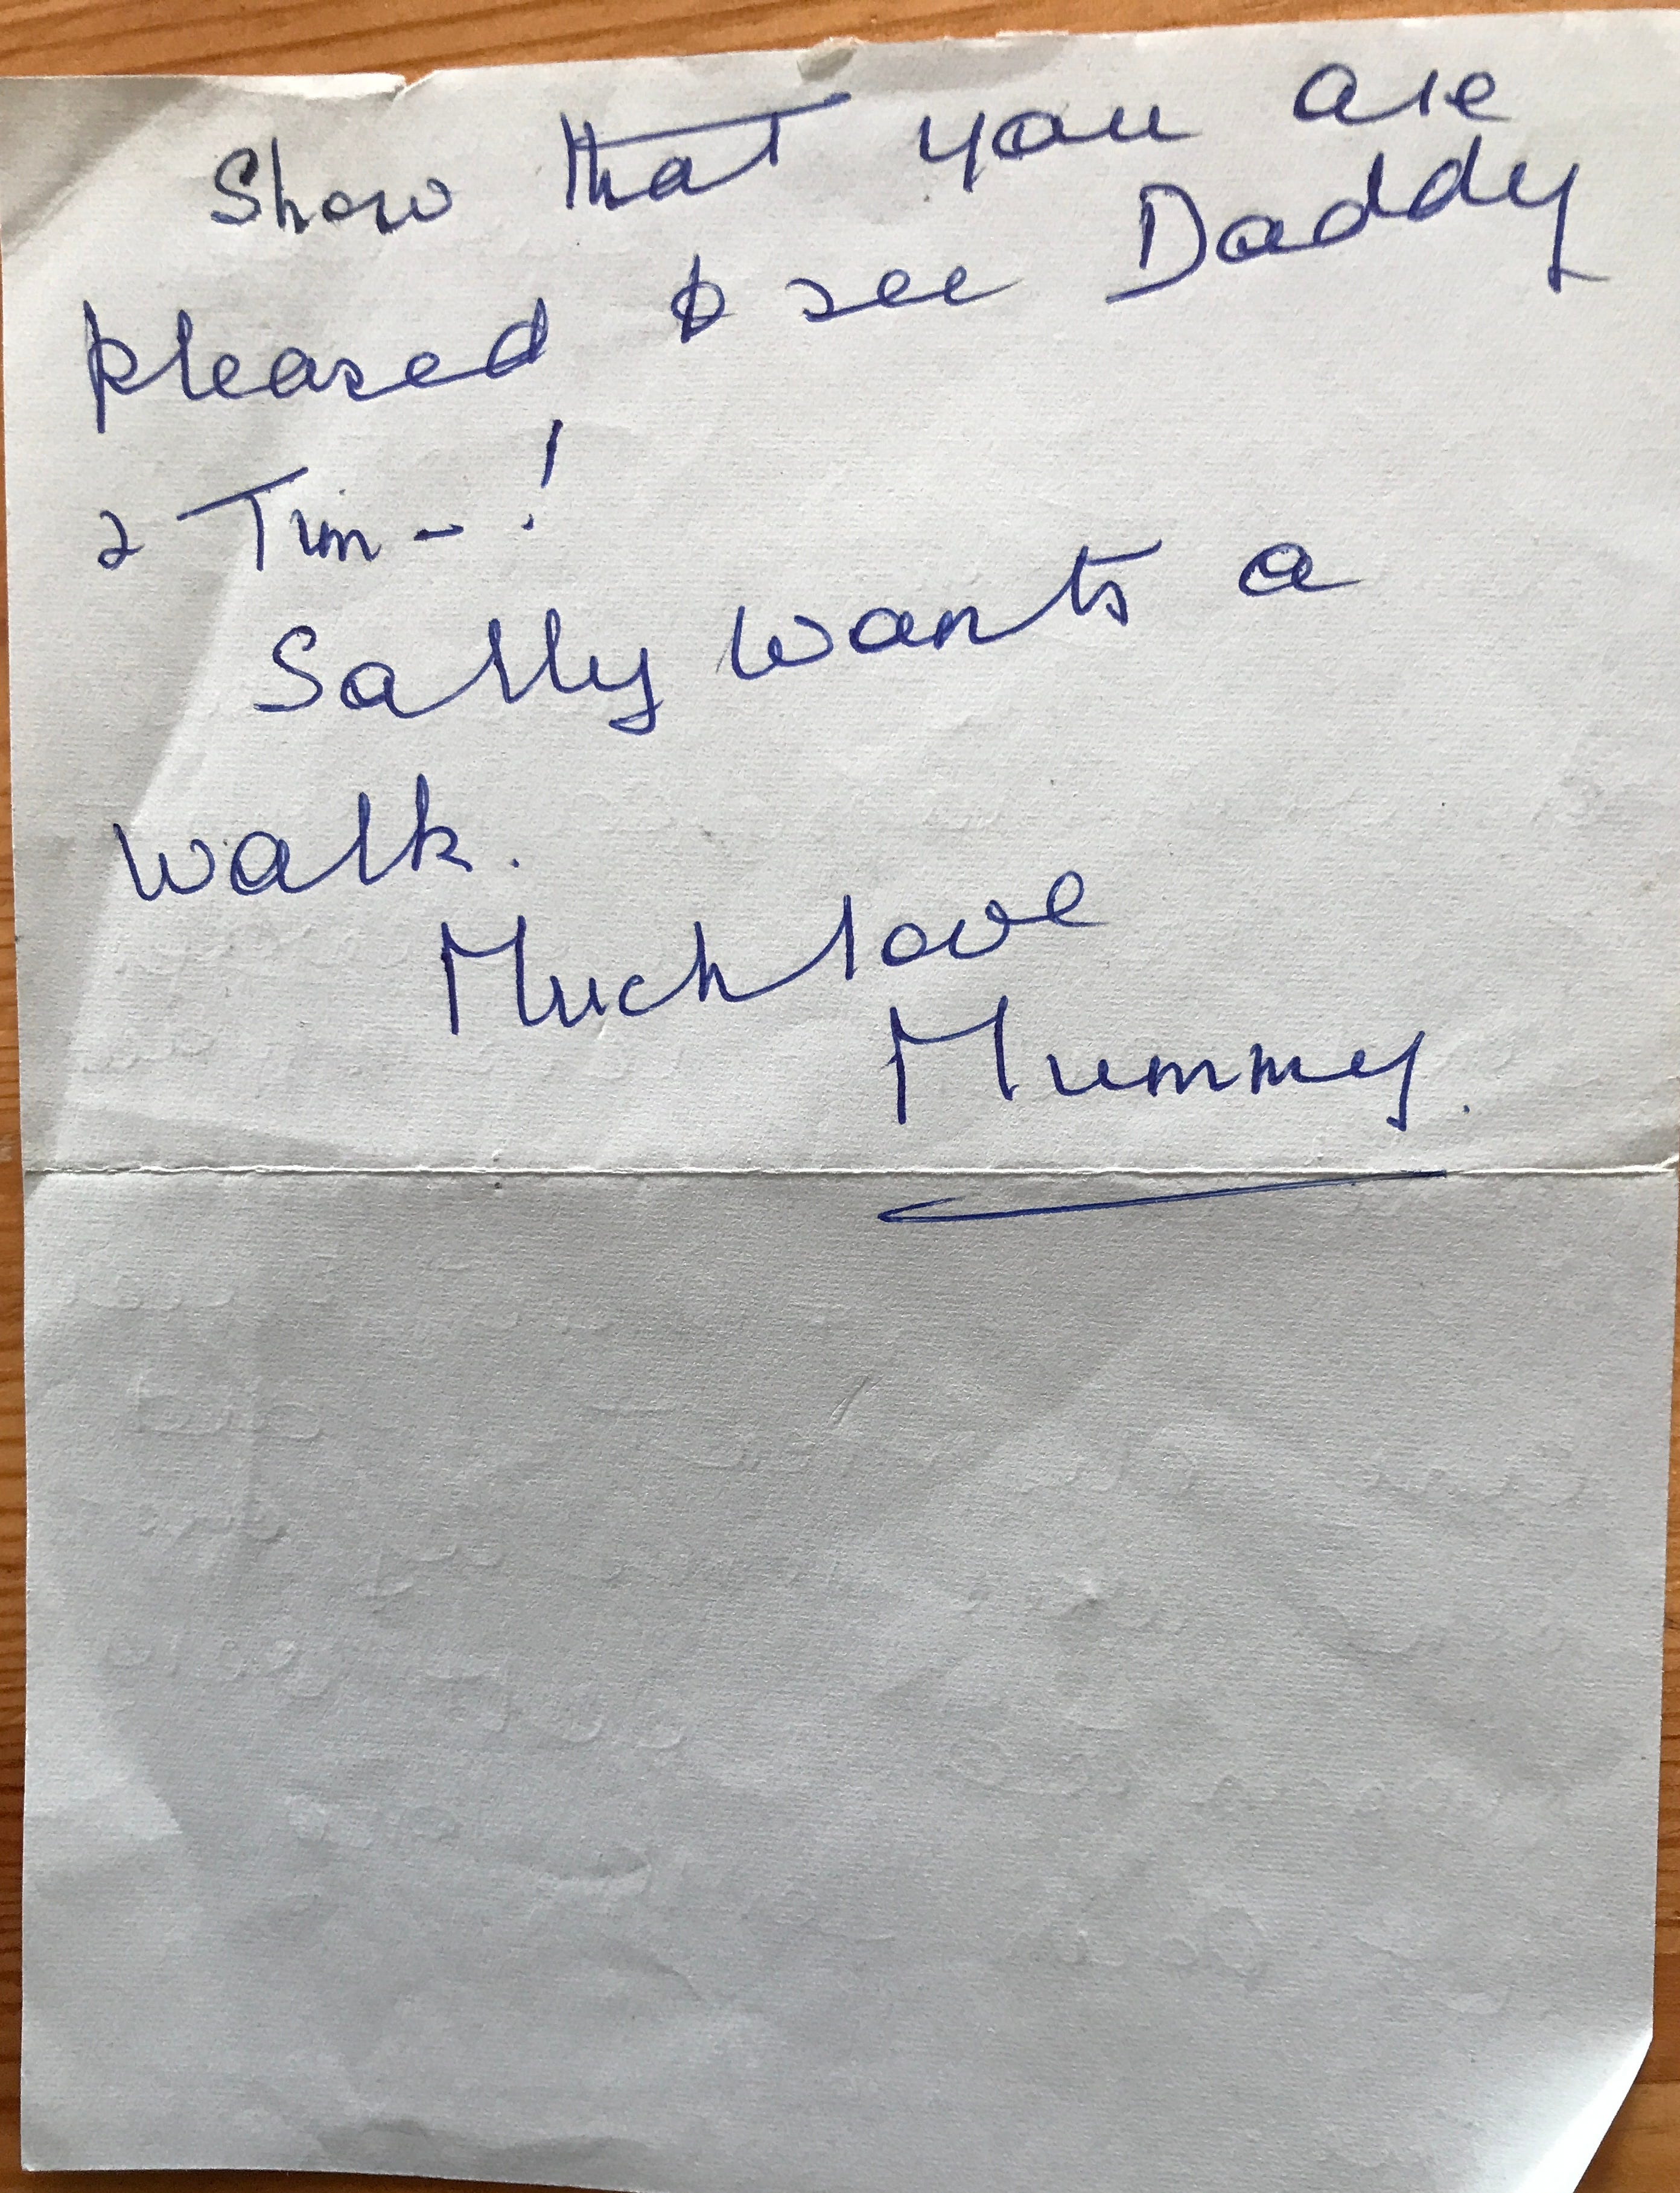 Show that you are
pleased to see Daddy
& Tim - !
Sally wants a
walk.
Much love
Mummy.